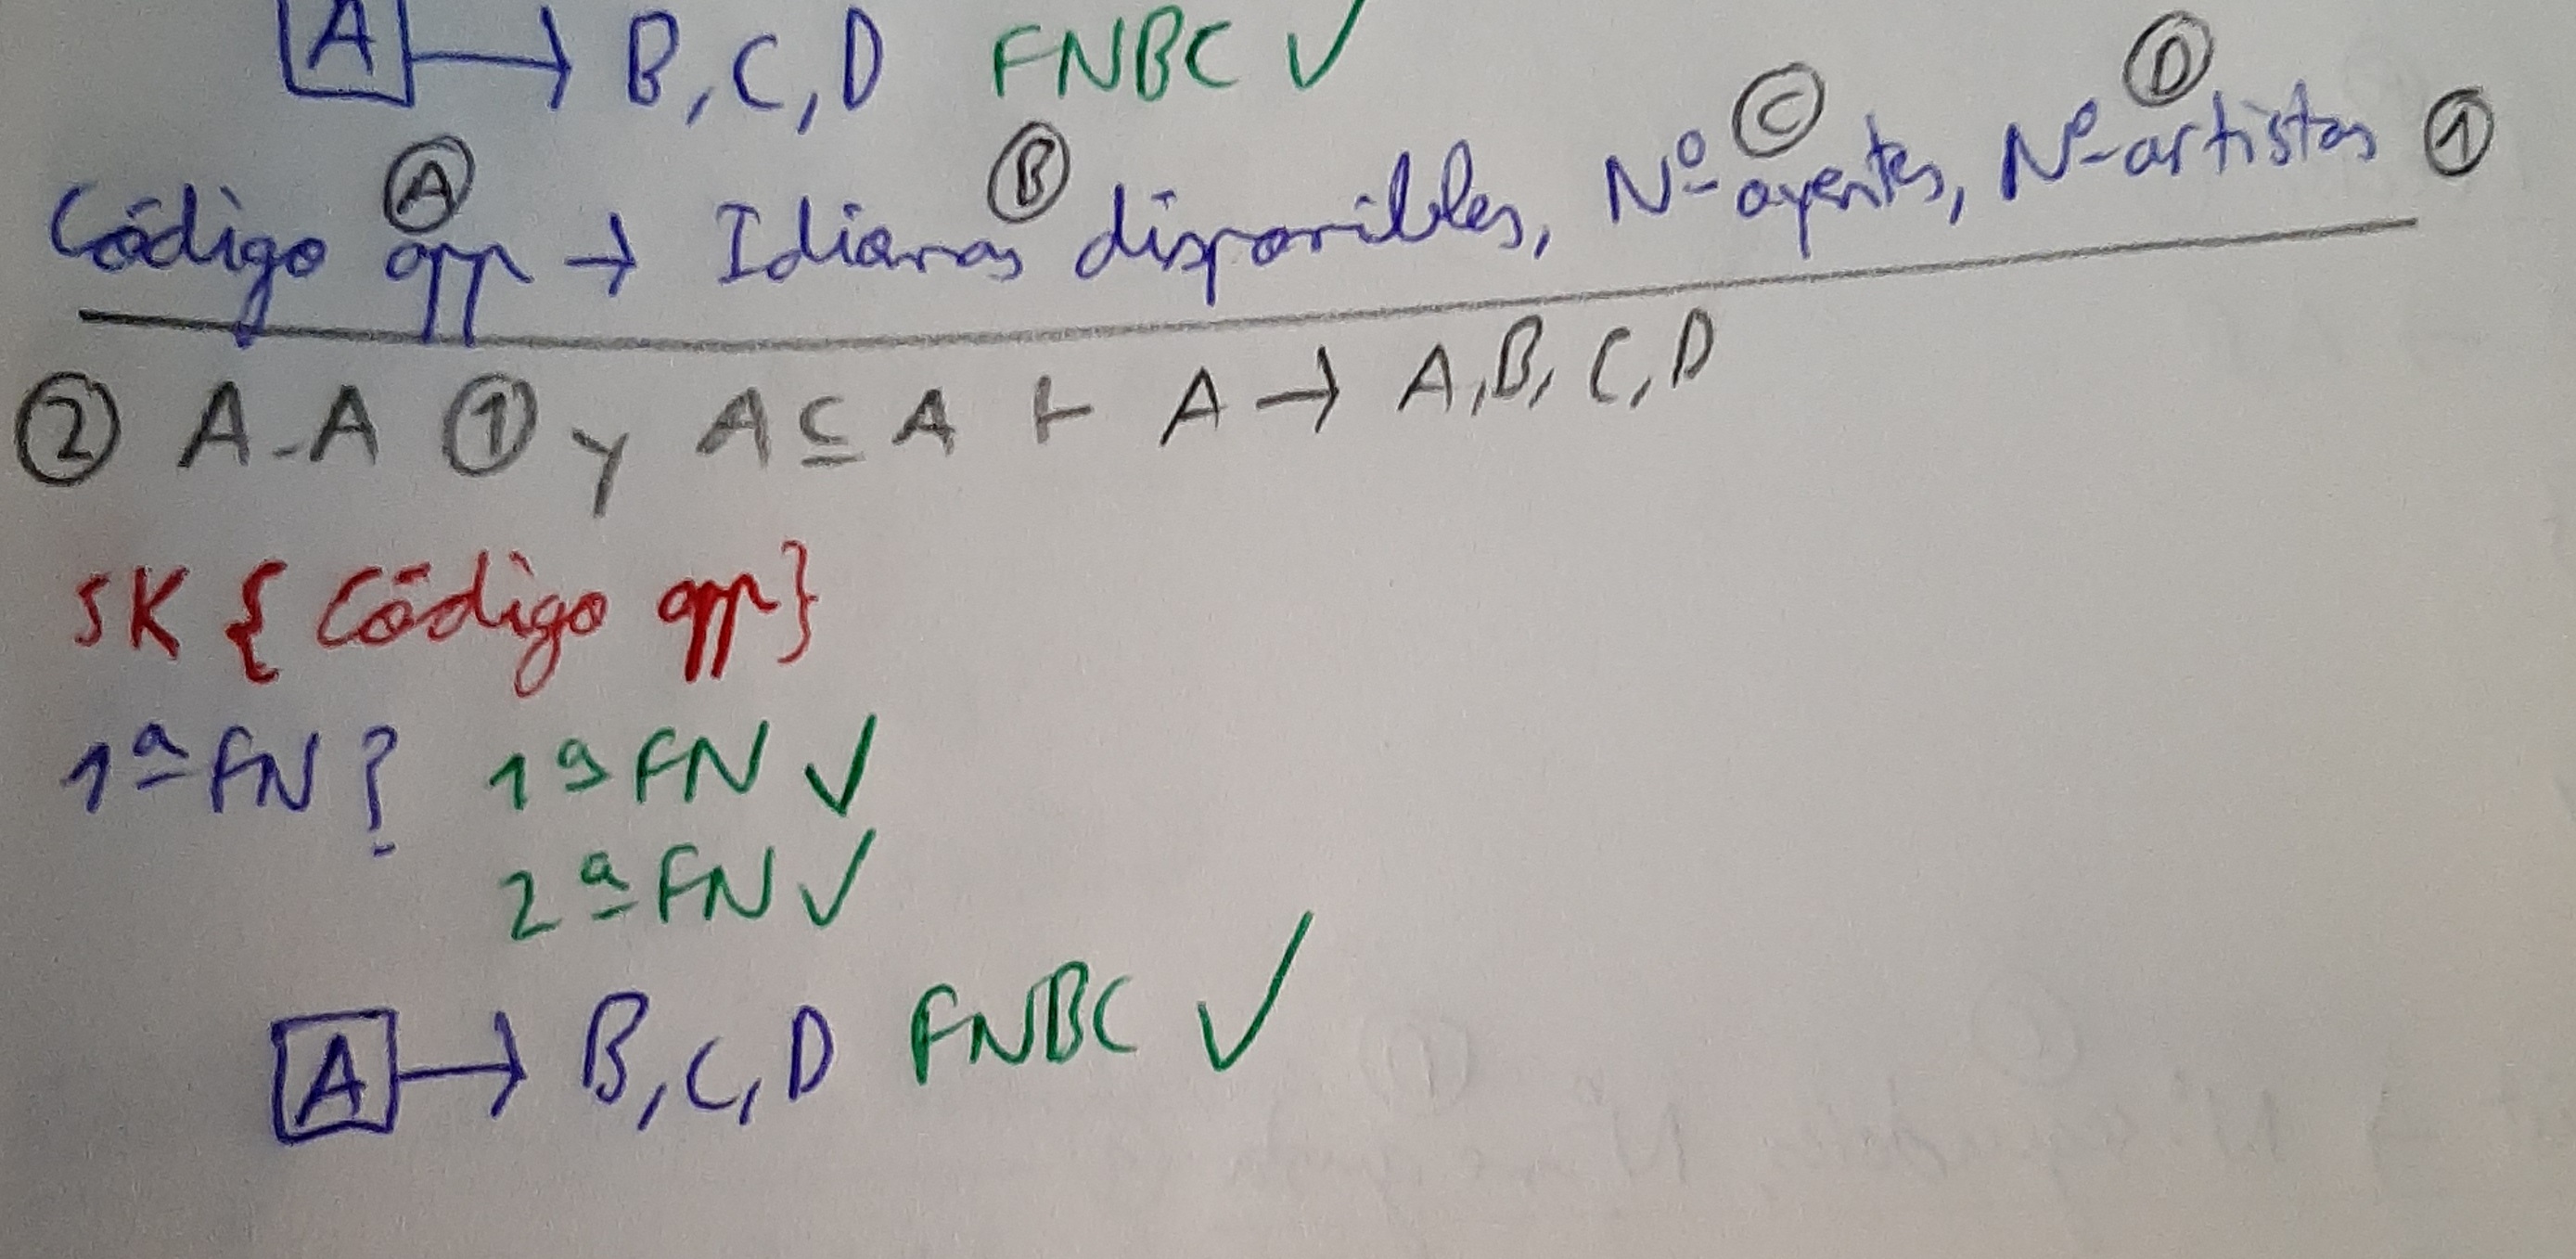 A → B, C, D FNBC ✓
A B C D
Código app → Idiomas disponibles, Nº agentes, Nº artistas ①
② A-A ① y A ⊆ A ⊢ A → A, B, C, D
SK { Código app }
1ª FN? 1ª FN ✓
2ª FN ✓
A → B, C, D FNBC ✓